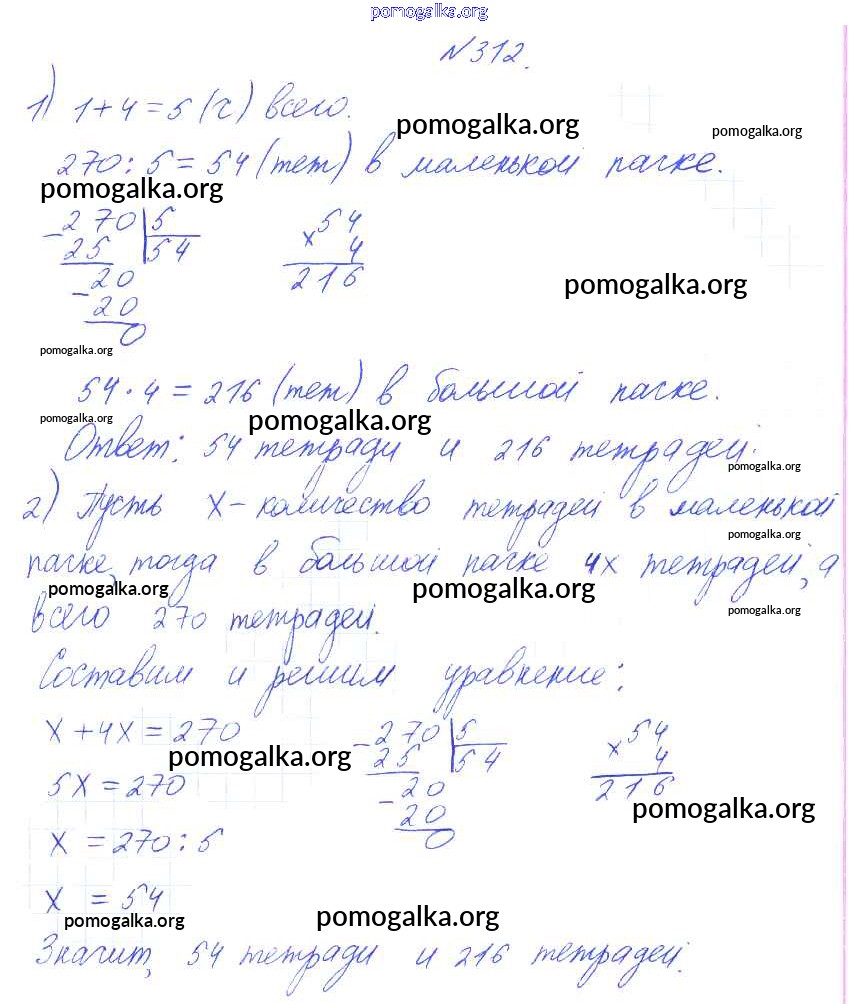 pomogalka.org
N 312.
1) 1+4=5 (ч) всего.
pomogalka.org
pomogalka.org
270:5=54 (тет) в маленькой пачке.
pomogalka.org
- 270 5
25 54
- 20
20
0
× 54
4
216
pomogalka.org
pomogalka.org
54·4=216 (тет) в большой пачке.
pomogalka.org
pomogalka.org
Ответ: 54 тетради и 216 тетрадей.
pomogalka.org
2) Пусть x - количество тетрадей в маленькой
pomogalka.org
пачке, тогда в большой пачке 4x тетрадей, а
pomogalka.org
pomogalka.org
pomogalka.org
всего 270 тетрадей.
Составим и решим уравнение:
x+4x=270
pomogalka.org
5x=270
x=270:5
x=54
- 270 5
25 54
- 20
20
0
× 54
4
216
pomogalka.org
pomogalka.org
pomogalka.org
Значит, 54 тетради и 216 тетрадей.